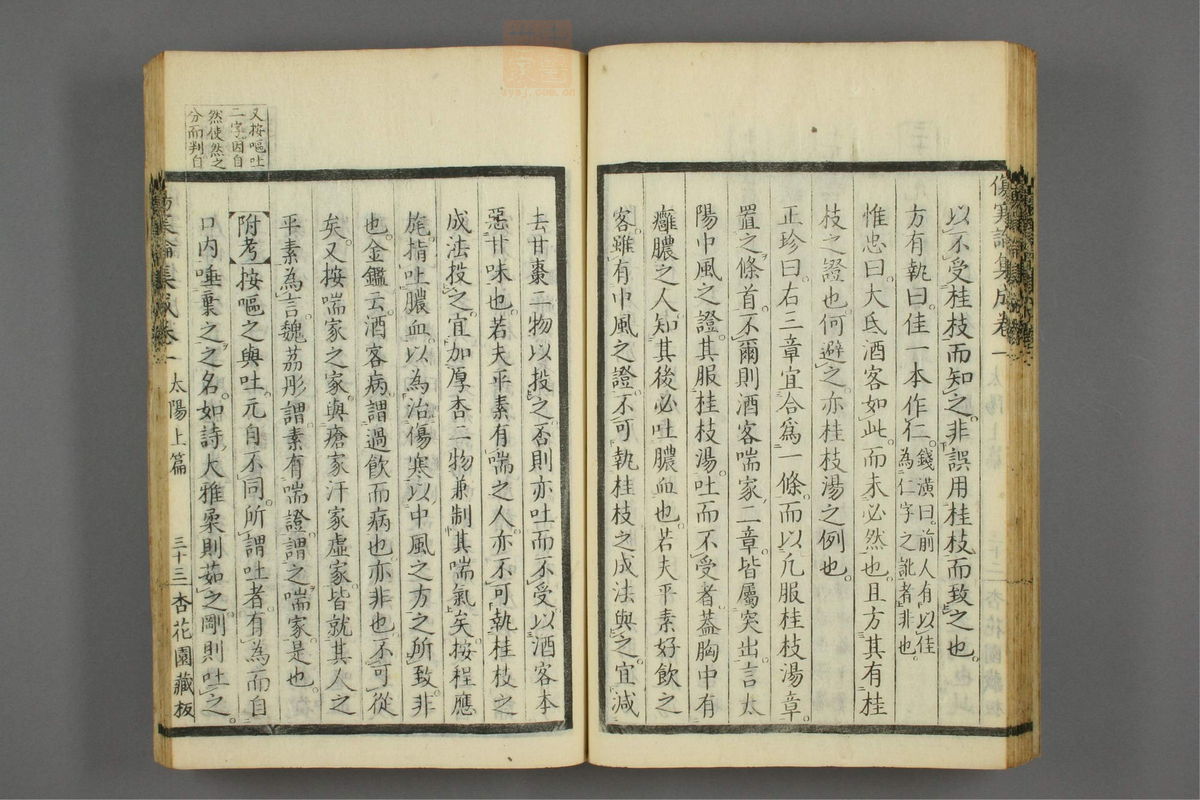 傷寒論集成卷一
以不受桂枝而知之非誤用桂枝而致之也
方有執曰佳一本作仁錢潢曰前人有以佳
為仁字之訛者非也
惟忠曰大氐酒客如此而未必然也且方其有桂
枝之證也何避之亦桂枝湯之例也
正珍曰右三章宜合爲一條而以凡服桂枝湯章
置之條首不爾則酒客喘家二章皆屬突出言太
陽中風之證其服桂枝湯吐而不受者蓋胸中有
癰膿之人知其後必吐膿血也若夫平素好飲之
客雖有中風之證不可執桂枝之成法與之宜減
去甘棗二物以投之否則亦吐而不受以酒客本
惡甘味也若夫平素有喘之人亦不可執桂枝之
成法投之宜加厚杏二物兼制其喘氣矣按程應
旄指吐膿血以為治傷寒以中風之方之所致非
也金鑑云酒客病謂過飲而病也亦非也不可從
矣又按喘家之家與瘡家汗家虛家皆就其人之
平素為言魏荔彤謂素有喘證謂之喘家是也
附考按嘔之與吐元自不同所謂吐者有為而自
口内唾棄之之名如詩大雅柔則茹之剛則吐之
又按嘔吐
二字因自
然使然之
分而判自
傷寒論集成卷一 太陽上篇 三十三 杏花園藏板